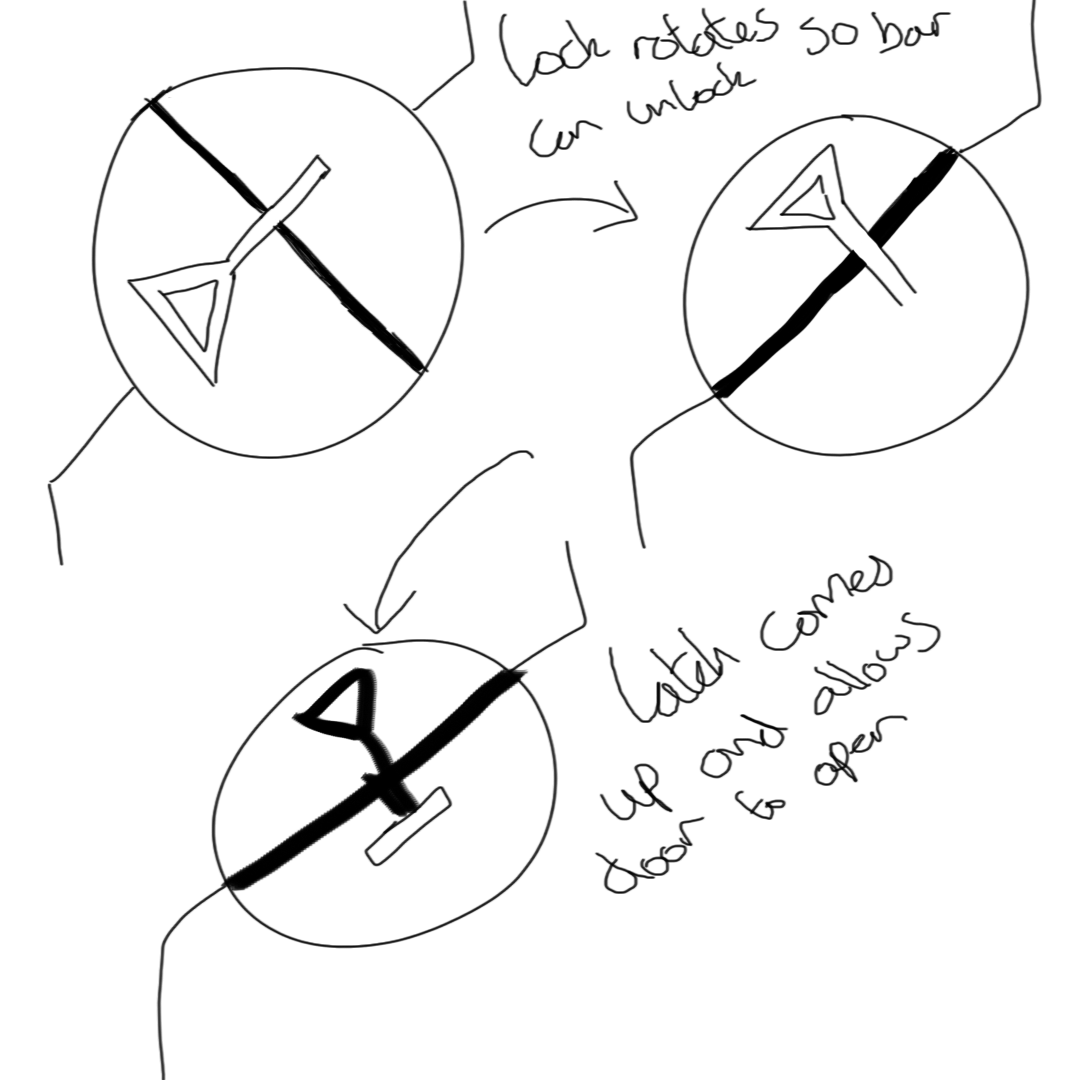 Lock rotates so bar
can unlock
Latch comes
up and allows
door to open